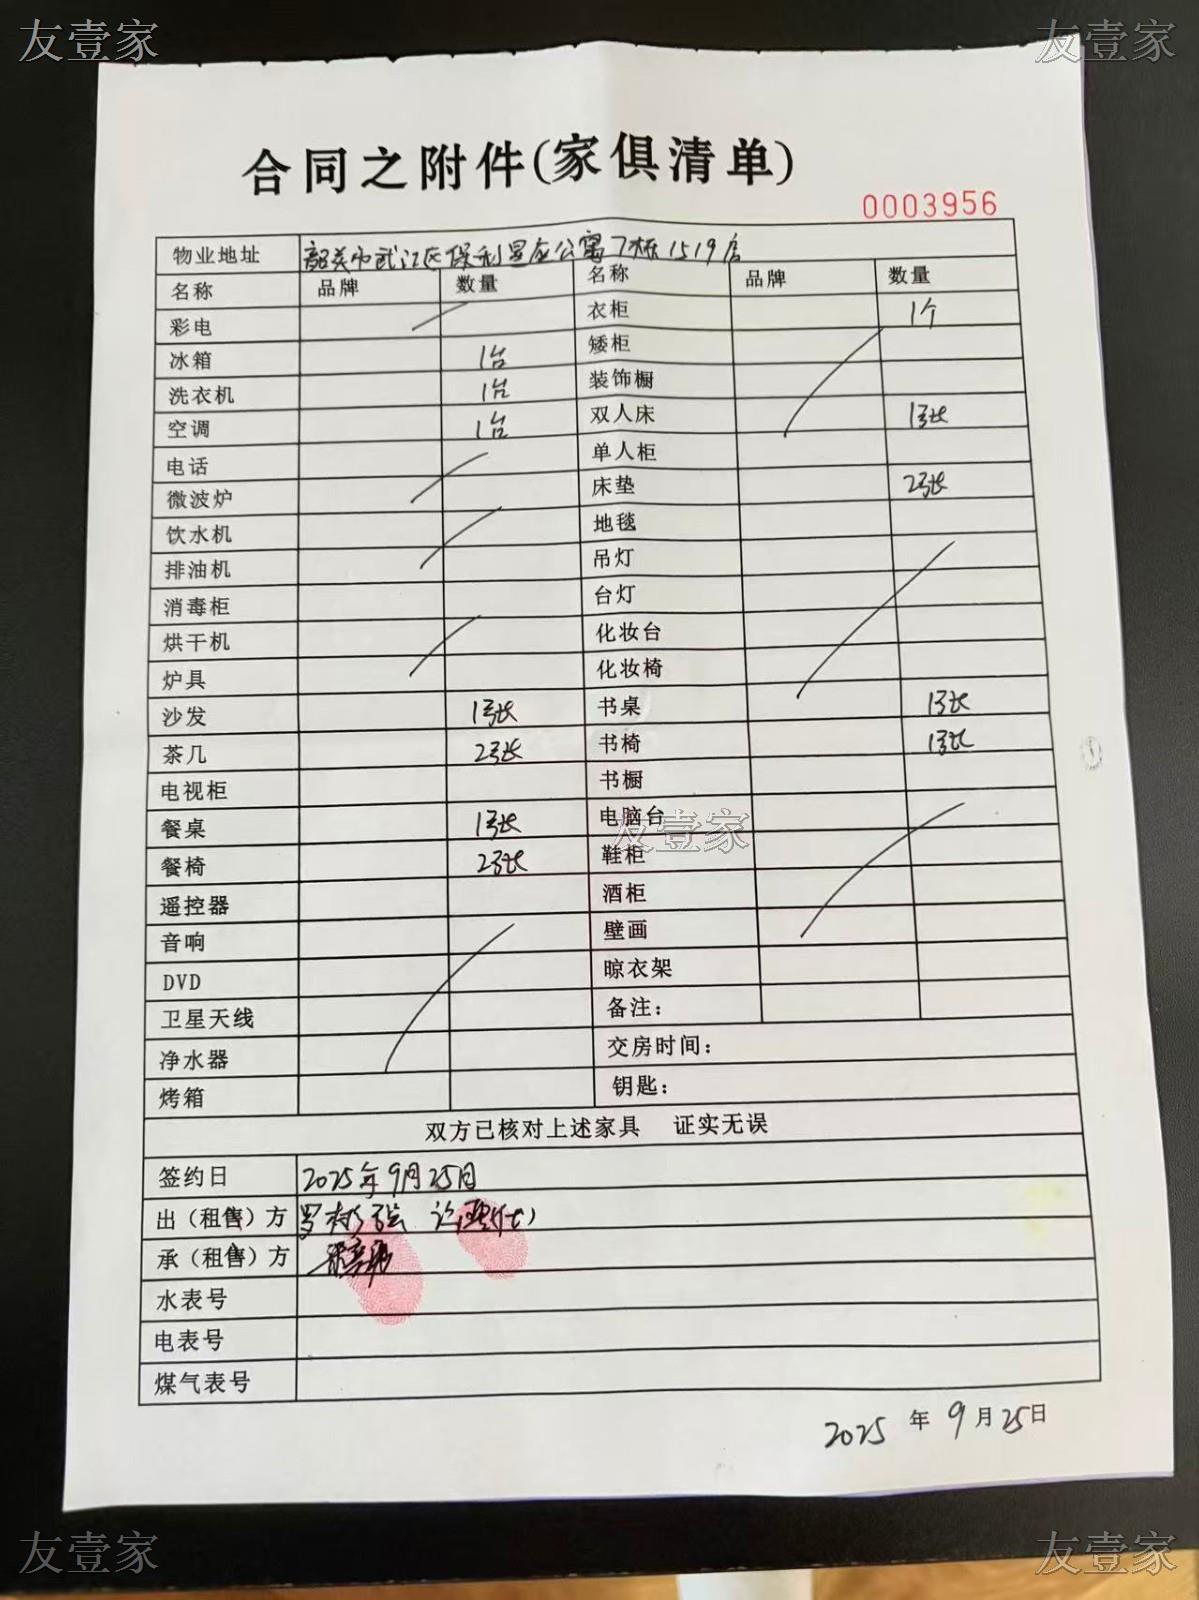 友壹家 友壹家
合同之附件(家俱清单)
0003956
物业地址 韶关市武江区保利星座公寓7栋1519房
名称 品牌 数量 名称 品牌 数量
彩电 衣柜 1个
冰箱 1台 矮柜
洗衣机 1台 装饰橱
空调 1台 双人床 1张
电话 单人柜
微波炉 床垫 2张
饮水机 地毯
排油机 吊灯
消毒柜 台灯
烘干机 化妆台
炉具 化妆椅
沙发 1张 书桌 1张
茶几 2张 书椅 1张
电视柜 书橱
餐桌 1张 电脑台
友壹家
餐椅 2张 鞋柜
遥控器 酒柜
音响 壁画
DVD 晾衣架
卫星天线 备注：
净水器 交房时间：
烤箱 钥匙：
双方已核对上述家具 证实无误
签约日 2025年9月25日
出（租售）方
承（租售）方
水表号
电表号
煤气表号
2025 年 9 月 25 日
友壹家 友壹家